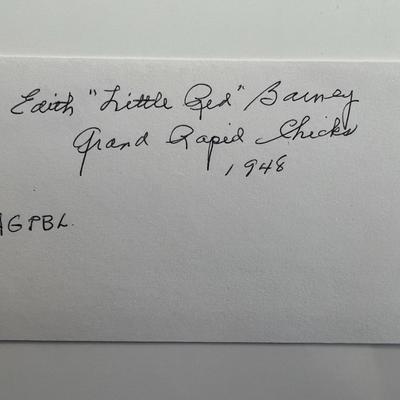 Edith "Little Red" Barney
Grand Rapid Chicks
1948
AGPBL.